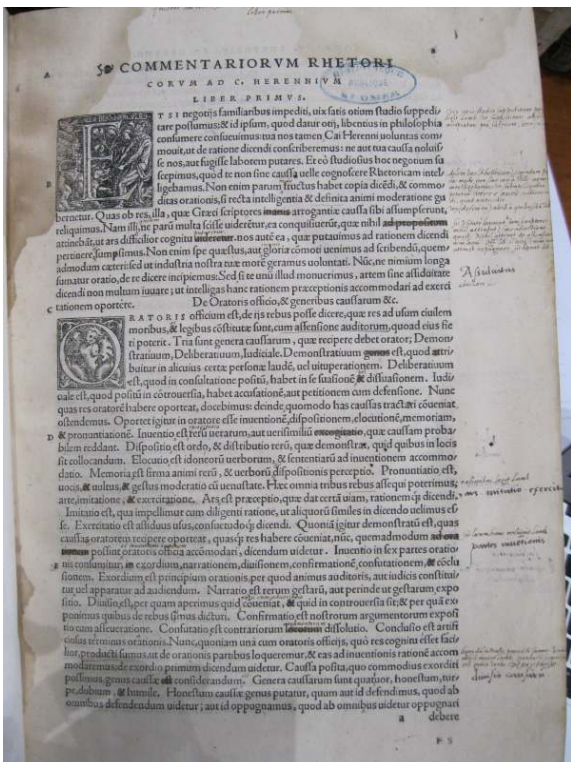 COMMENTARIORVM RHETORI
CORVM AD C. HERENNIVM
LIBER PRIMVS.
A
TSI negotijs familiaribus impediti, uix satis otium studio suppedi/
tare possumus: & id ipsum, quod datur otij, libentius in philosophia
consumere consueuimus: tua nos tamen Cai Herenni uoluntas com/
mouit, ut de ratione dicendi conscriberemus: ne aut tua caussa noluis/
se nos, aut fugisse laborem putares. Et eò studiosius hoc negotium su
scepimus, quod te non sine caussa uelle cognoscere Rhetoricam intel/
B
ligebamus. Non enim parum fructus habet copia dicēdi, & commo/
ditas orationis, si recta intelligentia & definita animi moderatione gu
bernetur. Quas ob res, illa, quæ Græci scriptores inanis arrogantiæ caussa sibi assumpserunt,
reliquimus. Nam illi, ne parū multa scisse uiderētur, ea conquisiuerūt, quæ nihil ad propositum
attinebāt, ut ars difficilior cognitu uideretur. nos autē ea, quæ putauimus ad rationem dicendi
pertinere, sumpsimus. Non enim spe quæstus, aut gloria cōmoti uenimus ad scribendū, quem/
admodum cæteri: sed ut industria nostra tuæ morē geramus uoluntati. Nūc, ne nimium longa
sumatur oratio, de re dicere incipiemus: Sed si te unū illud monuerimus, artem sine assiduitate
dicendi non multum iuuare; ut intelligas hanc rationem præceptionis accommodari ad exerci
C tationem oportere. De Oratoris officio, & generibus caussarum &c.
RATORIS officium est, de ijs rebus posse dicere, quæ res ad usum ciuilem
moribus, & legibus cōstitutæ sunt, cum assensione auditorum, quoad eius fie
ri poterit. Tria sunt genera caussarum, quæ recipere debet orator; Demon/
stratiuum, Deliberatiuum, Iudiciale. Demonstratiuum genus est, quod attri/
buitur in alicuius certæ personæ laudē, uel uituperationem. Deliberatiuum
est, quod in consultatione positū, habet in se suasionē & dissuasionem. Iudi/
ciale est, quod positū in cōtrouersia, habet accusationē, aut petitionem cum defensione. Nunc
quas res oratorē habere oporteat, docebimus: deinde quomodo has caussas tractari cōueniat,
ostendemus. Oportet igitur in oratore esse inuentionē, dispositionem, elocutionē, memoriam,
D & pronuntiationē. Inuentio est rerū uerarum, aut uerisimiliū excogitatio, quæ caussam proba/
bilem reddant. Dispositio est ordo, & distributio rerū, quæ demonstrat, quid quibus in locis
sit collocandum. Elocutio est idoneorū uerborum, & sententiarū ad inuentionem accommo/
datio. Memoria est firma animi rerū, & uerborū dispositionis perceptio. Pronuntiatio est,
uocis, & uultus, & gestus moderatio cū uenustate. Hæc omnia tribus rebus assequi poterimus;
arte, imitatione, & exercitatione. Ars est præceptio, quæ dat certā uiam, rationemq̃ dicendi.
Imitatio est, qua impellimur cum diligenti ratione, ut aliquorū similes in dicendo uelimus es/
se. Exercitatio est assiduus usus, consuetudoq́; dicendi. Quoniā igitur demonstratū est, quas
caussas oratorem recipere oporteat, quasq́; res habere cōueniat, nūc, quemadmodum ad ora
tionem possint oratoris officia accōmodari, dicendum uidetur. Inuentio in sex partes oratio/
E nis consumitur, in exordium, narrationem, diuisionem, confirmationē, confutationem, & cōclu
sionem. Exordium est principium orationis, per quod animus auditoris, aut iudicis constitui/
tur uel apparatur ad audiendum. Narratio est rerum gestarū, aut perinde ut gestarum expo
sitio. Diuisio est, per quam aperimus quid cōueniat, & quid in controuersia sit; & per quā ex/
ponimus quibus de rebus simus dicturi. Confirmatio est nostrorum argumentorum exposi
tio cum asseueratione. Confutatio est contrariorum locorum dissolutio. Conclusio est artifi
ciosus terminus orationis. Nunc, quoniam unà cum oratoris officijs, quo res cognitu esset faci/
lior, producti sumus, ut de orationis partibus loqueremur, & eas ad inuentionis rationē accom
modaremus, de exordio primum dicendum uidetur. Caussa posita, quo commodius exordiri
possimus, genus caussæ est considerandum. Genera caussarum sunt quatuor, honestum, tur/
pe, dubium, & humile. Honestum caussæ genus putatur, quum aut id defendimus, quod ab
omnibus defendendum uidetur; aut id oppugnamus, quod ab omnibus uidetur oppugnari
a debere